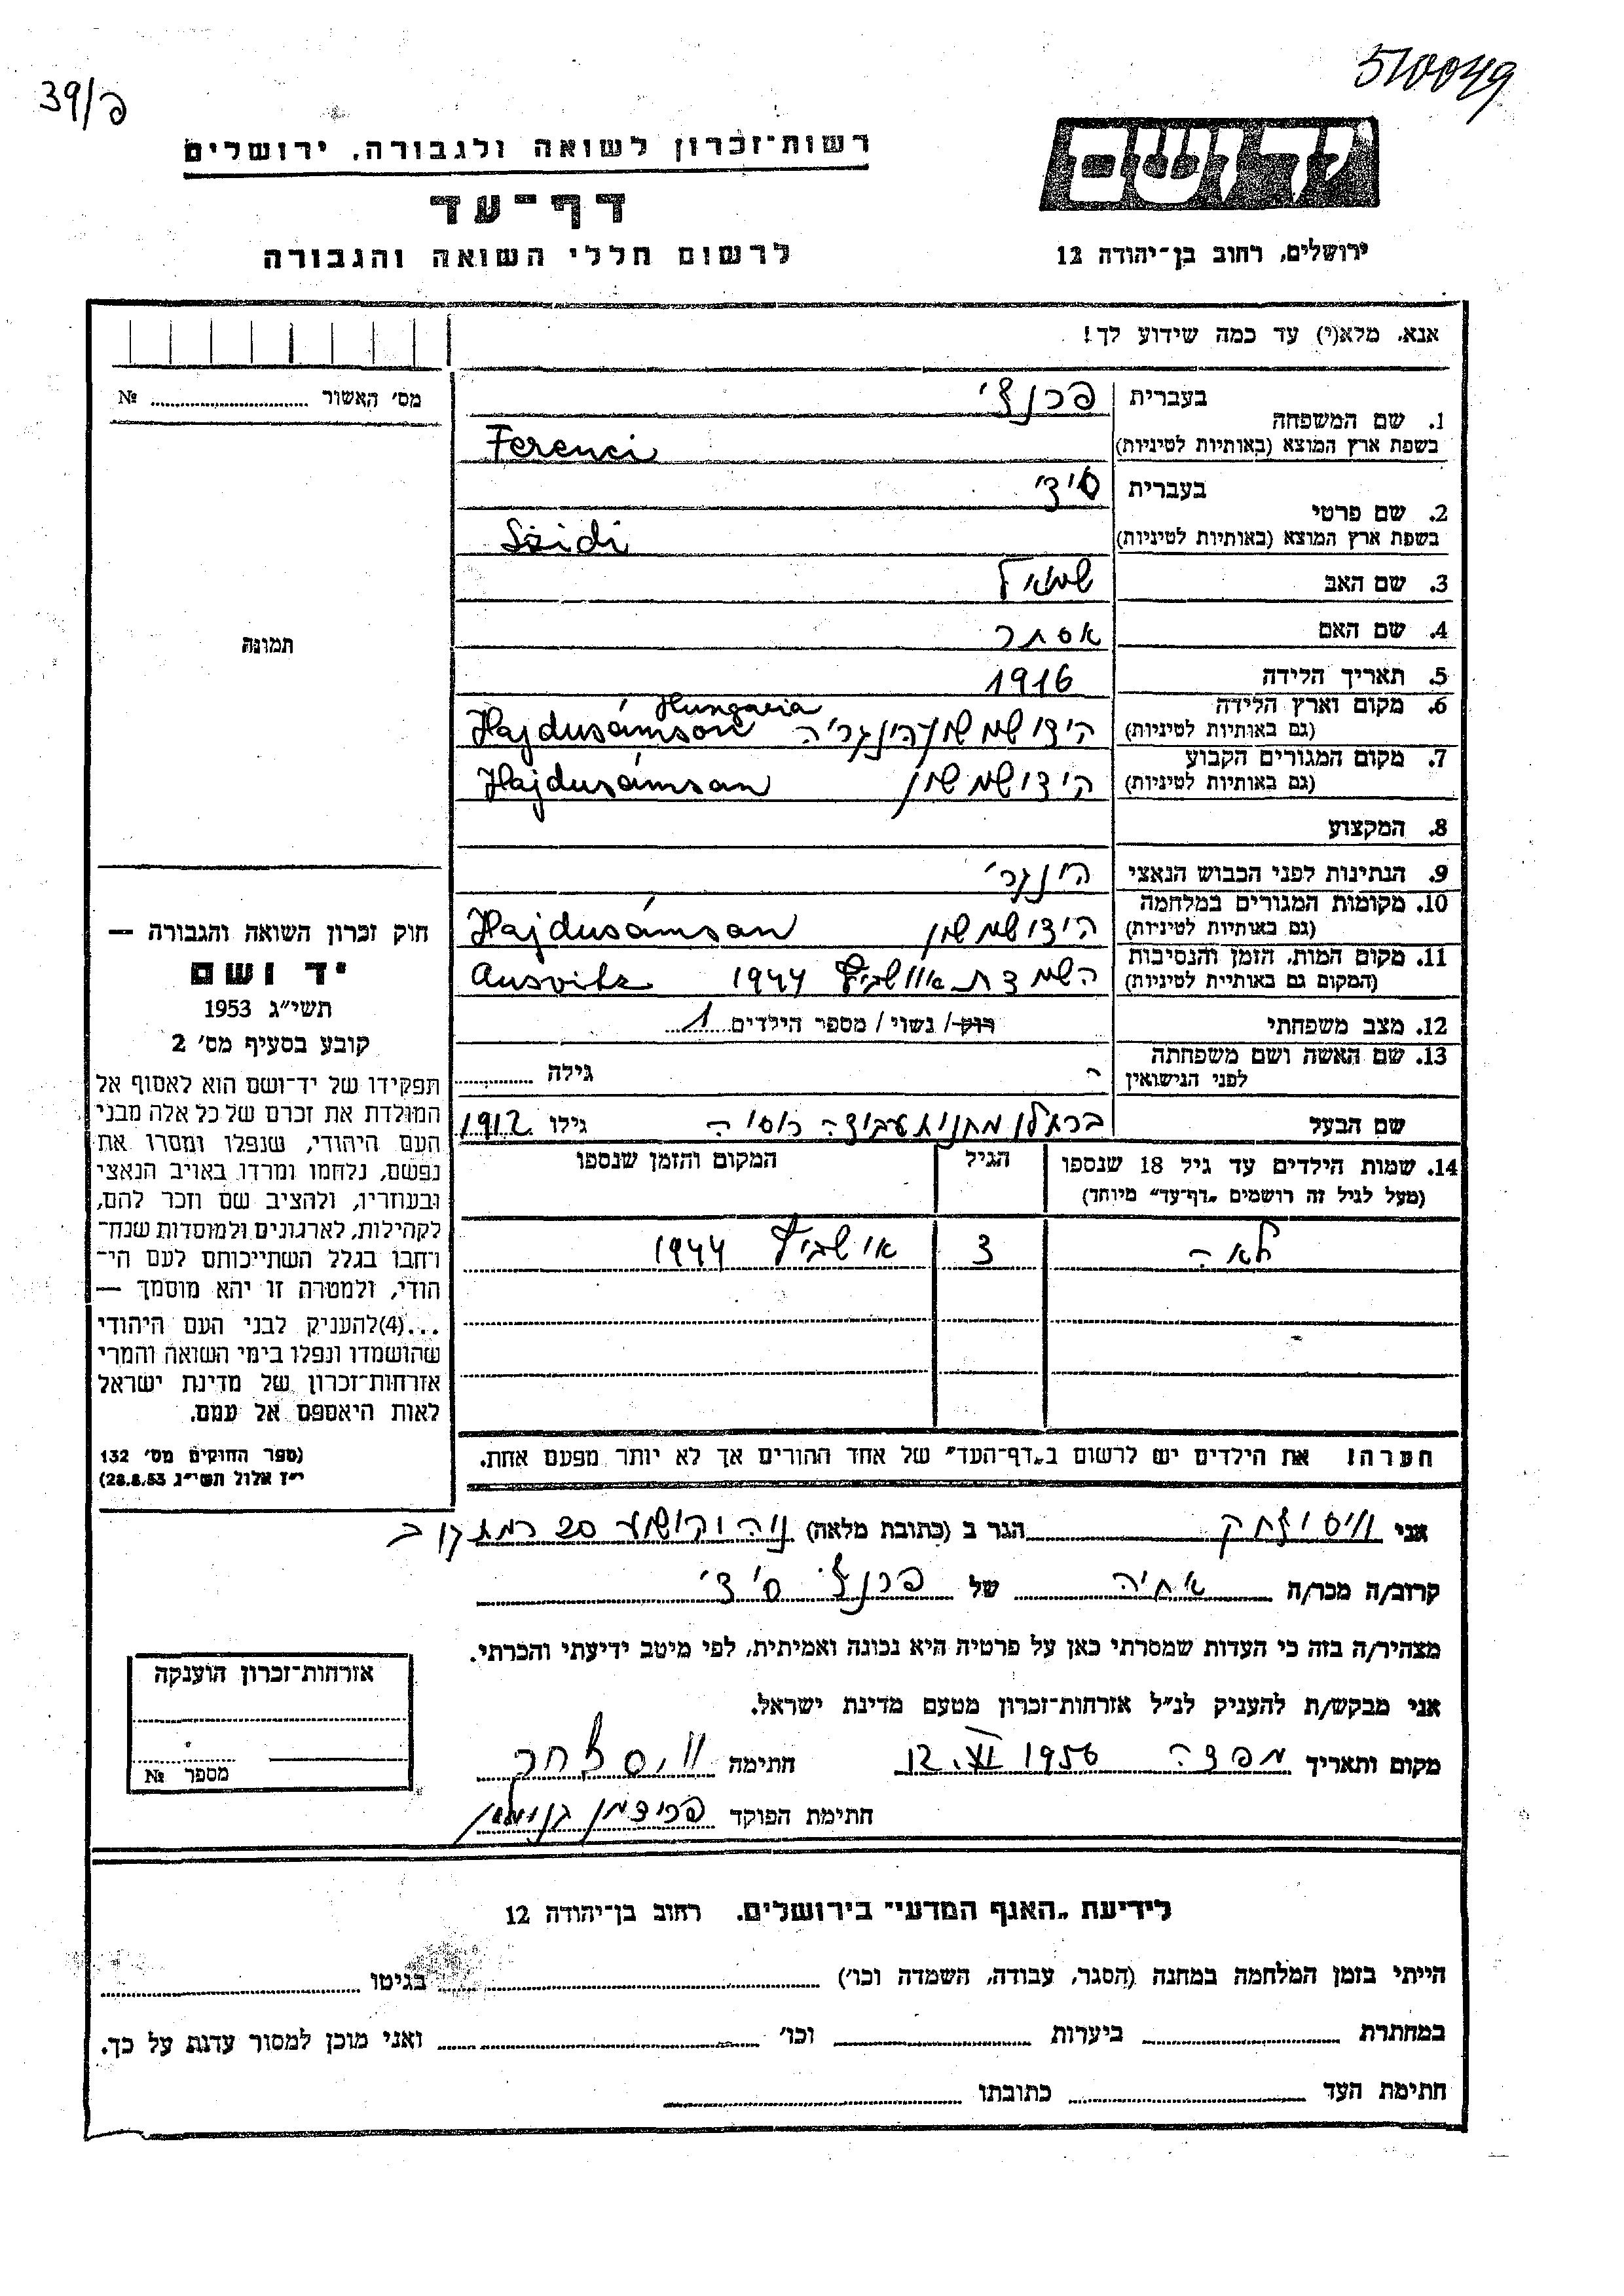 570049
פ/39
יד ושם
רשות־זכרון לשואה ולגבורה, ירושלים
דף־עד
לרשום חללי השואה והגבורה
ירושלים, רחוב בן־יהודה 12
אנא, מלא(י) עד כמה שידוע לך!
מס׳ האשור № 
1. שם המשפחה
בעברית פרנצי
בשפת ארץ המוצא (באותיות לטיניות) Ferenci
2. שם פרטי
בעברית סידי
בשפת ארץ המוצא (באותיות לטיניות) Szidi
3. שם האב שמואל
4. שם האם אסתר
5. תאריך הלידה 1916
6. מקום וארץ הלידה (גם באותיות לטיניות) היידושמשון הונגריה Hajdusámson Hungaria
7. מקום המגורים הקבוע (גם באותיות לטיניות) היידושמשון Hajdusámsan
8. המקצוע
9. הנתינות לפני הכבוש הנאצי הונגרי
10. מקומות המגורים במלחמה (גם באותיות לטיניות) היידושמשון Hajdusámsan
11. מקום המות, הזמן והנסיבות (המקום גם באותיית לטיניות) השמדת אוושביץ 1944 Ausvitz
12. מצב משפחתי רוק/ נשוי/ מספר הילדים 1
13. שם האשה ושם משפחתה לפני הנישואין גילה
שם הבעל עבודה רוסיה גילו 1912
14. שמות הילדים עד גיל 18 שנספו
(מעל לגיל זה רושמים „דף־עד״ מיוחד)
הגיל
המקום והזמן שנספו
לאה 3 אושביץ 1944
הערה! את הילדים יש לרשום ב„דף־העד״ של אחד ההורים אך לא יותר מפעם אחת.
תמונה
חוק זכרון השואה והגבורה —
יד ושם
תשי״ג 1953
קובע בסעיף מס׳ 2
תפקידו של יד־ושם הוא לאסוף אל
המולדת את זכרם של כל אלה מבני
העם היהודי, שנפלו ומסרו את
נפשם, נלחמו ומרדו באויב הנאצי
ובעוזריו, ולהציב שם וזכר להם,
לקהילות, לארגונים ולמוסדות שנח־
רחבו בגלל השתייכותם לעם הי־
הודי, ולמטרה זו יהא מוסמך —
...(4)להעניק לבני העם היהודי
שהושמדו ונפלו בימי השואה והמרי
אזרחות־זכרון של מדינת ישראל
לאות היאספם אל עמם.
(ספר החוקים מס׳ 132
י״ז אלול תשי״ג 28.8.53)
אני וויס יצחק הגר ב (כתובת מלאה) נוה יהושע 20 רמת גן
קרוב/ה מכר/ה אחיה של פרנצי סידי
מצהיר/ה בזה כי העדות שמסרתי כאן על פרטיה היא נכונה ואמיתית, לפי מיטב ידיעתי והכרתי.
אני מבקש/ת להעניק לנ״ל אזרחות־זכרון מטעם מדינת ישראל.
מקום ותאריך 12.VI.1956 חתימה וויס יצחק
חתימת הפוקד פרידמן
אזרחות־זכרון הוענקה
מספר №
לידיעת „האגף המדעי״ בירושלים, רחוב בן־יהודה 12
הייתי בזמן המלחמה במחנה (הסגר, עבודה, השמדה וכו׳) בגיטו
במחתרת ביערות וכו׳ ואני מוכן למסור עדות על כך.
חתימת העד כתובתו